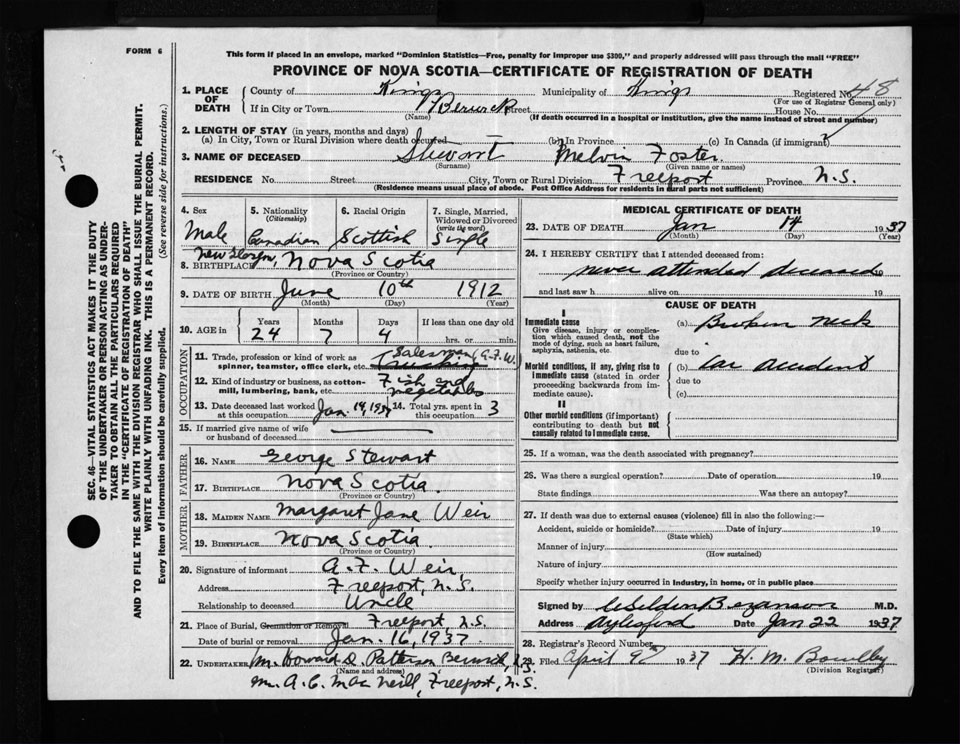 FORM 6
This form if placed in an envelope, marked "Dominion Statistics—Free, penalty for improper use $300," and properly addressed will pass through the mail "FREE"
PROVINCE OF NOVA SCOTIA—CERTIFICATE OF REGISTRATION OF DEATH
1. PLACE OF DEATH County of Kings Municipality of Kings Registered No. 48
(For use of Registrar General only)
If in City or Town Berwick Street House No.
(Name) (If death occurred in a hospital or institution, give the name instead of street and number)
2. LENGTH OF STAY (in years, months and days)
(a) In City, Town or Rural Division where death occurred (b) In Province (c) In Canada (if immigrant)
3. NAME OF DECEASED Stewart Melvin Foster
(Surname) (Given name or names)
RESIDENCE No. Street City, Town or Rural Division Freeport Province N.S.
(Residence means usual place of abode. Post Office Address for residents in rural parts not sufficient)
4. Sex 5. Nationality (Citizenship) 6. Racial Origin 7. Single, Married, Widowed or Divorced (write the word)
Male Canadian Scottish Single
8. BIRTHPLACE Nova Scotia
(Province or Country)
9. DATE OF BIRTH June 10th 1912
(Month) (Day) (Year)
10. AGE in Years Months Days If less than one day old
24 7 4 hrs. or min.
OCCUPATION
11. Trade, profession or kind of work as spinner, teamster, office clerk, etc. Salesman (A.F.W.)
12. Kind of industry or business, as cotton-mill, lumbering, bank, etc. Fish and vegetables
13. Date deceased last worked at this occupation Jan. 14, 1937 14. Total yrs. spent in this occupation 3
15. If married give name of wife or husband of deceased
FATHER
16. NAME George Stewart
17. BIRTHPLACE Nova Scotia
(Province or Country)
MOTHER
18. MAIDEN NAME Margaret Jane Weir
19. BIRTHPLACE Nova Scotia
(Province or Country)
20. Signature of informant A. F. Weir
Address Freeport, N.S.
Relationship to deceased Uncle
21. Place of Burial, Cremation or Removal Freeport, N.S.
Date of burial or removal Jan. 16, 1937
22. UNDERTAKER Mr. Howard D. Patterson Berwick, N.S.
(Name and address)
Mr. A. C. MacNeill, Freeport, N.S.
MEDICAL CERTIFICATE OF DEATH
23. DATE OF DEATH Jan 14 1937
(Month) (Day) (Year)
24. I HEREBY CERTIFY that I attended deceased from:
never attended deceased 19
and last saw h alive on 19
CAUSE OF DEATH
I
Immediate cause
Give disease, injury or complication which caused death, not the mode of dying, such as heart failure, asphyxia, asthenia, etc.
(a) Broken neck
due to
Morbid conditions, if any, giving rise to immediate cause (stated in order proceeding backwards from immediate cause).
(b) Car accident
due to
(c)
II
Other morbid conditions (if important) contributing to death but not causally related to immediate cause.
25. If a woman, was the death associated with pregnancy?
26. Was there a surgical operation? Date of operation 19
State findings Was there an autopsy?
27. If death was due to external causes (violence) fill in also the following:—
Accident, suicide or homicide? Date of injury 19
(State which)
Manner of injury
(How sustained)
Nature of injury
Specify whether injury occurred in industry, in home, or in public place
Signed by Bezanson M.D.
Address Aylesford Date Jan 22 1937
28. Registrar's Record Number
29. Filed April 9 1937 H. M.
(Division Registrar)
SEC. 46—VITAL STATISTICS ACT MAKES IT THE DUTY
OF THE UNDERTAKER OR PERSON ACTING AS UNDER-
TAKER TO OBTAIN ALL THE PARTICULARS REQUIRED
IN THE "CERTIFICATE OF REGISTRATION OF DEATH"
AND TO FILE THE SAME WITH THE DIVISION REGISTRAR WHO SHALL ISSUE THE BURIAL PERMIT.
WRITE PLAINLY WITH UNFADING INK. THIS IS A PERMANENT RECORD.
Every item of information should be carefully supplied. (See reverse side for instructions.)